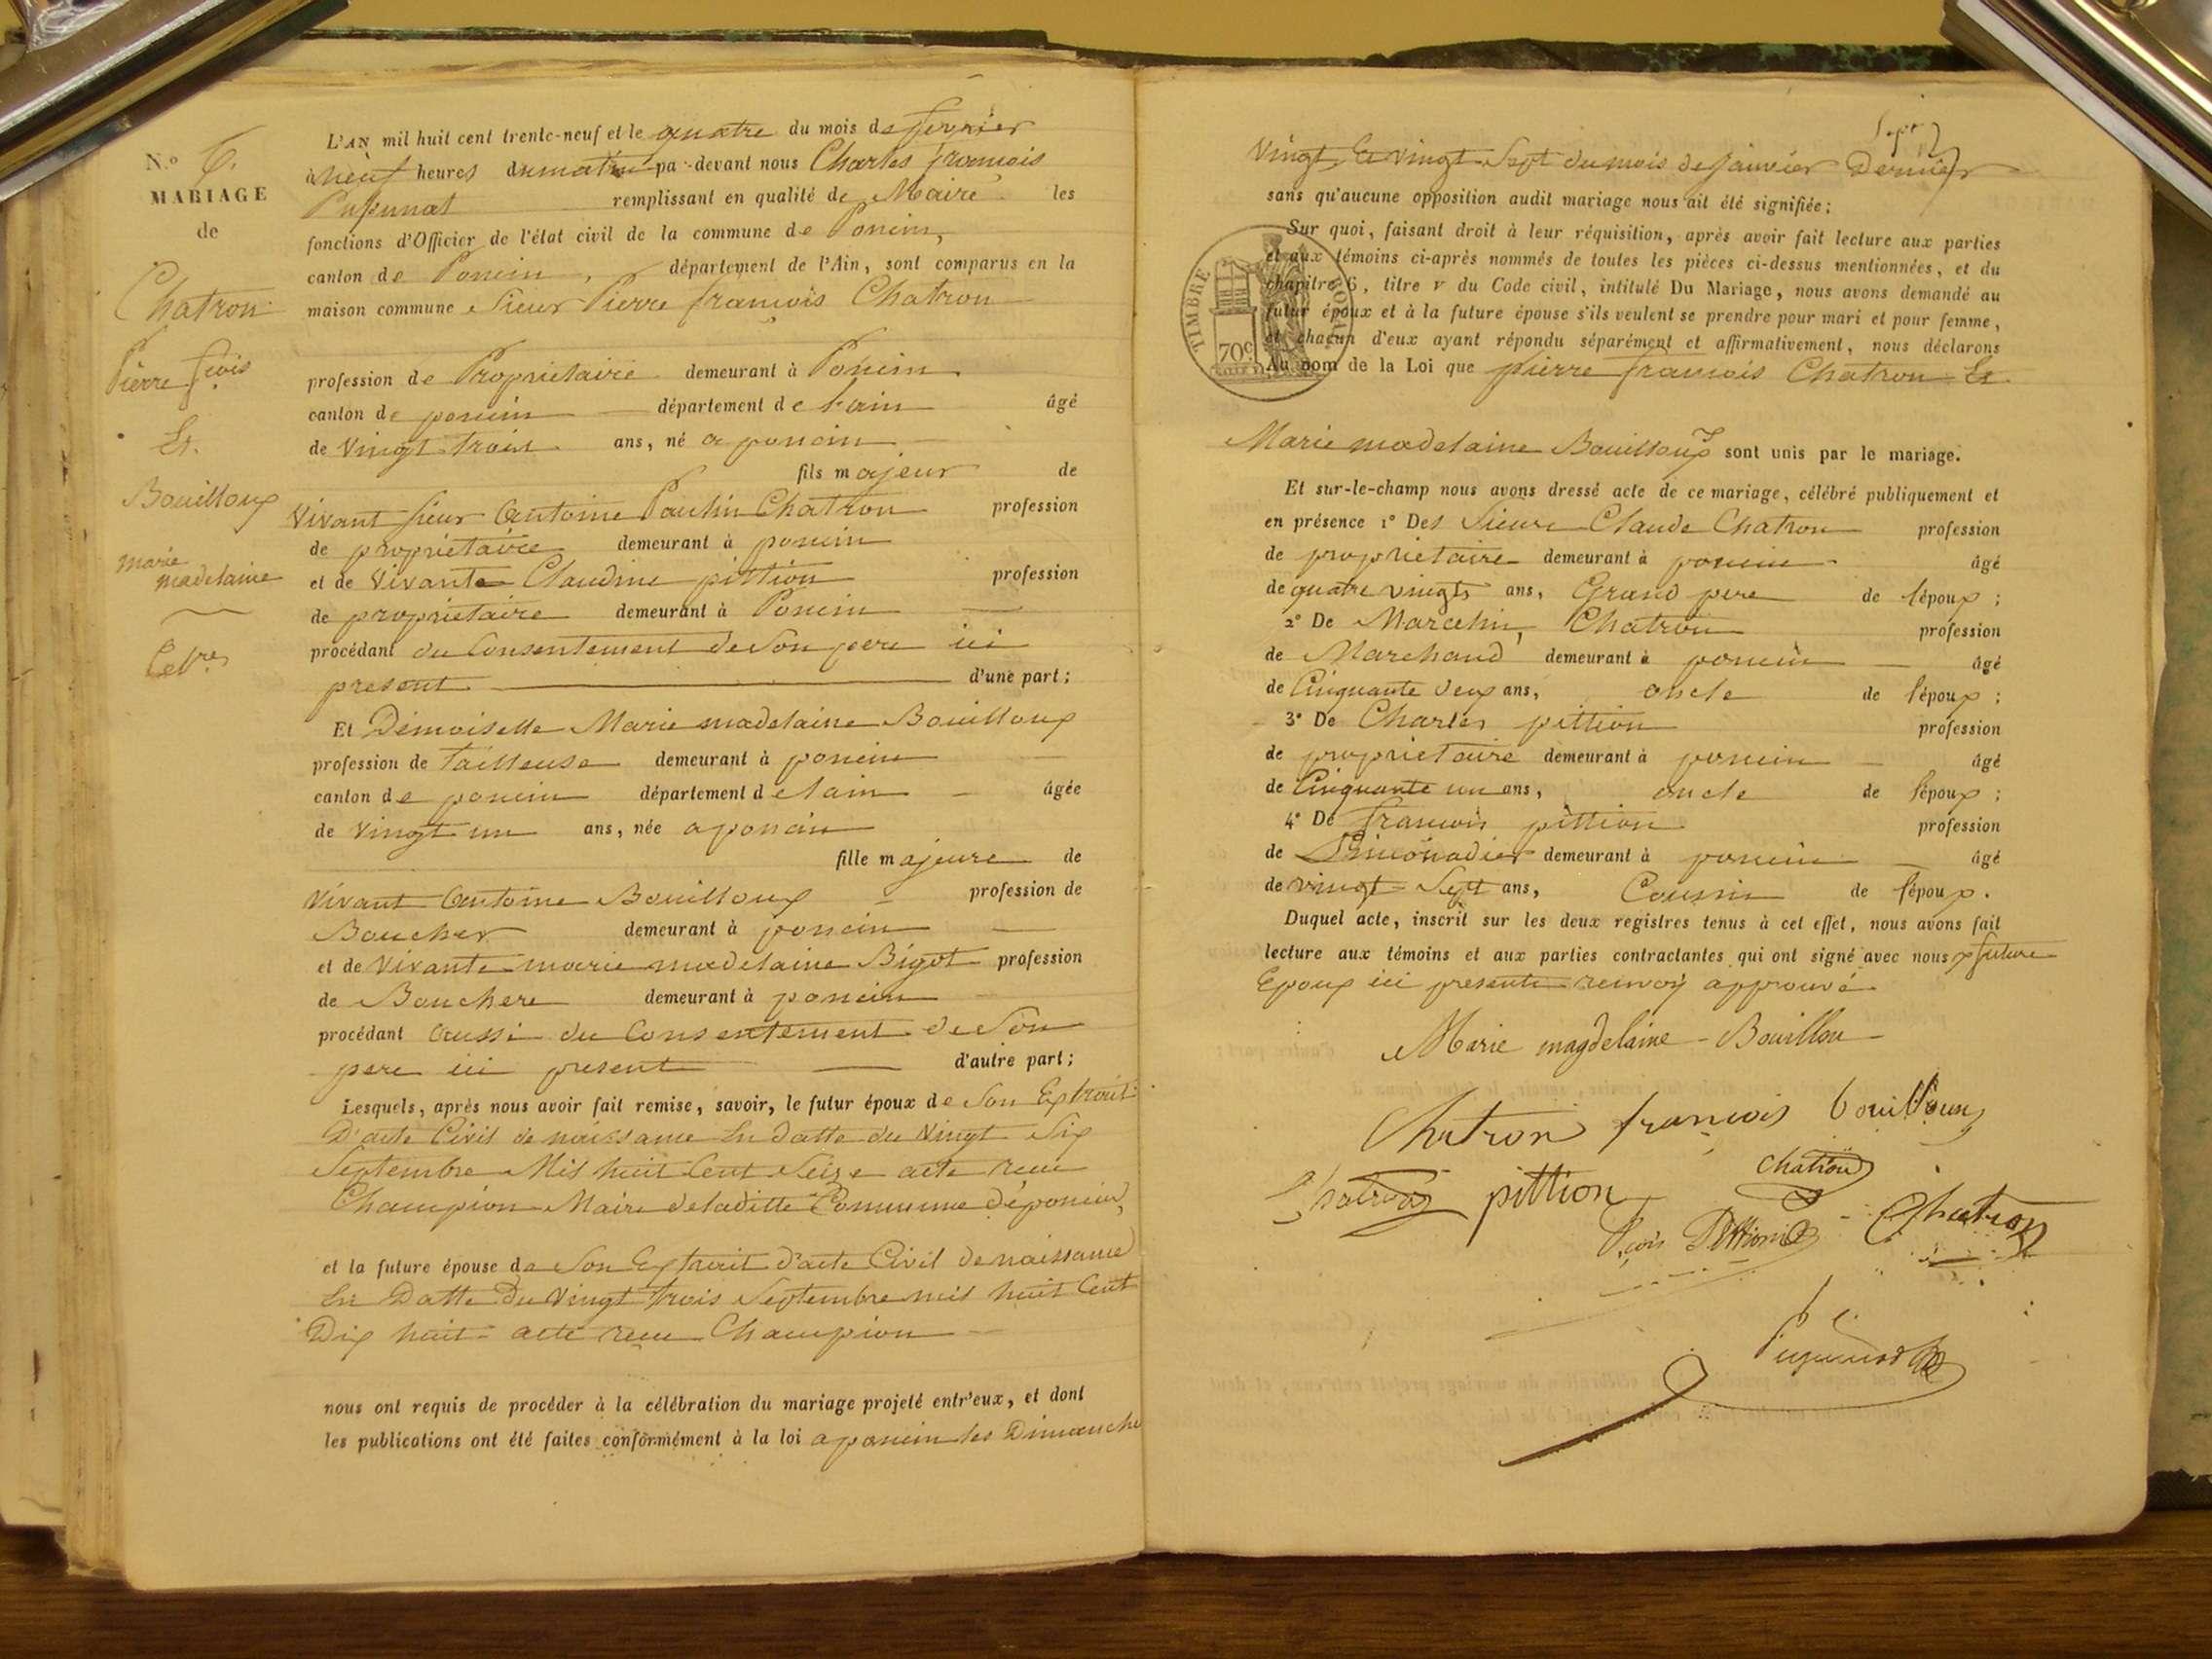 N.º 6.
MARIAGE
de
Chatron
Pierre fçois
Et
Bouilloux
marie
madelaine
L'AN mil huit cent trente-neuf et le quatre du mois de fevrier
à neuf heures du matin par-devant nous Charles francois
remplissant en qualité de Maire les
fonctions d'Officier de l'état civil de la commune de Poncin,
canton de Poncin, département de l'Ain, sont comparus en la
maison commune Sieur Pierre françois Chatron
profession de Proprietaire demeurant à Poncin
canton de poncin département de l'ain âgé
de Vingt trois ans, né a poncin
fils majeur de
Vivant sieur Antoine Paulin Chatron profession
de propriétaire demeurant à poncin
et de Vivante Claudine pittion profession
de propriétaire demeurant à Poncin
procédant du Consentement de Son pere ici
present d'une part;
Et Demoiselle Marie madelaine Bouilloux
profession de Tailleuse demeurant à poncin
canton de poncin département de lain âgée
de Vingt un ans, née a poncin
fille majeure de
Vivant Antoine Bouilloux profession de
Boucher demeurant à poncin
et de Vivante marie madelaine Bigot profession
de Bouchere demeurant à poncin
procédant aussi du Consentement de Son
pere ici present d'autre part;
Lesquels, après nous avoir fait remise, savoir, le futur époux de Son Extrait
D'acte Civil de naissance En datte du Vingt Six
Septembre Mil huit Cent Seize acte recu
Champion Maire de laditte Commune de poncin,
et la future épouse de Son Extrait d'acte Civil de naissance
En Datte Du Vingt trois Septembre mil huit Cent
Dix huit acte recu Champion
nous ont requis de procéder à la célébration du mariage projeté entr'eux, et dont
les publications ont été faites conformément à la loi a poncin les Dimanche
Vingt Et Vingt Sept du mois de Janvier Dernier
sans qu'aucune opposition audit mariage nous ait été signifiée;
Sur quoi, faisant droit à leur réquisition, après avoir fait lecture aux parties
et aux témoins ci-après nommés de toutes les pièces ci-dessus mentionnées, et du
chapitre 6, titre v du Code civil, intitulé Du Mariage, nous avons demandé au
futur époux et à la future épouse s'ils veulent se prendre pour mari et pour femme,
et chacun d'eux ayant répondu séparément et affirmativement, nous déclarons
Au nom de la Loi que pierre francois Chatron Et
TIMBRE ROYAL
70c
Marie madelaine Bouilloux sont unis par le mariage.
Et sur-le-champ nous avons dressé acte de ce mariage, célébré publiquement et
en présence 1º Des Sieurs Claude Chatron profession
de proprietaire demeurant à poncin âgé
de quatre vingts ans, Grand pere de l'époux;
2º De Marcelin, Chatron profession
de Marchand demeurant à poncin âgé
de Cinquante deux ans, oncle de l'époux;
3º De Charles pittion profession
de proprietaire demeurant à poncin âgé
de Cinquante un ans, oncle de l'époux;
4º De francois pittion profession
de Limonadier demeurant à poncin âgé
de vingt Sept ans, Cousin de l'époux.
Duquel acte, inscrit sur les deux registres tenus à cet effet, nous avons fait
lecture aux témoins et aux parties contractantes qui ont signé avec nous future
Epoux ici presente renvoy approuvé
Marie magdelaine Bouillou
Chatron françois bouilloux
Chatron pittion chatron
fçois Pittion Chatron